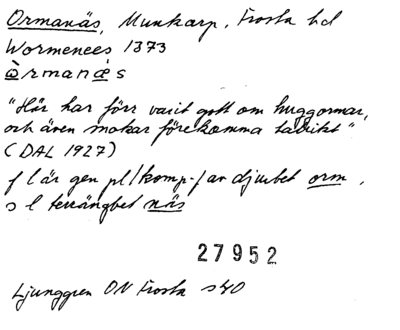 Ormanäs, Munkarp, Frosta hd
Wormenees 1373
òrmanǽs
"Här har förr varit gott om huggormar,
och även snokar förekomma talrikt"
(DAL 1927)
f l är gen pl/komp-/av djurbet orm,
s l terrängbet näs
27952
Ljunggren ON Frosta s 40